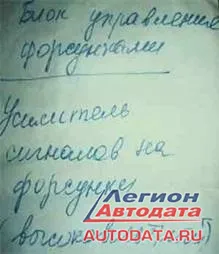 Блок управления
форсунками
Усилитель
сигналов на
форсунку
(высокая
ЛЕГИОН
АВТОДАТА
AUTODATA.RU